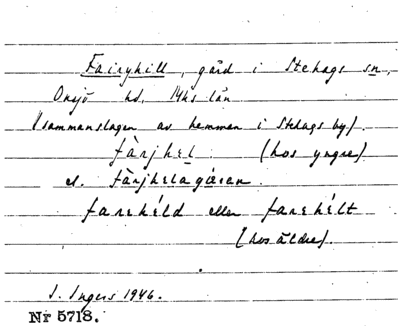 Fairyhill, gård i Stehags sn,
Onsjö hd. Mhs län
(sammanslagen av hemman i Stehags by).
färjhel (hos yngre)
el. färjhelagåran.
farehéld eller farehélt
(hos äldre).
I. Ingers 1946.
Nr 5718.